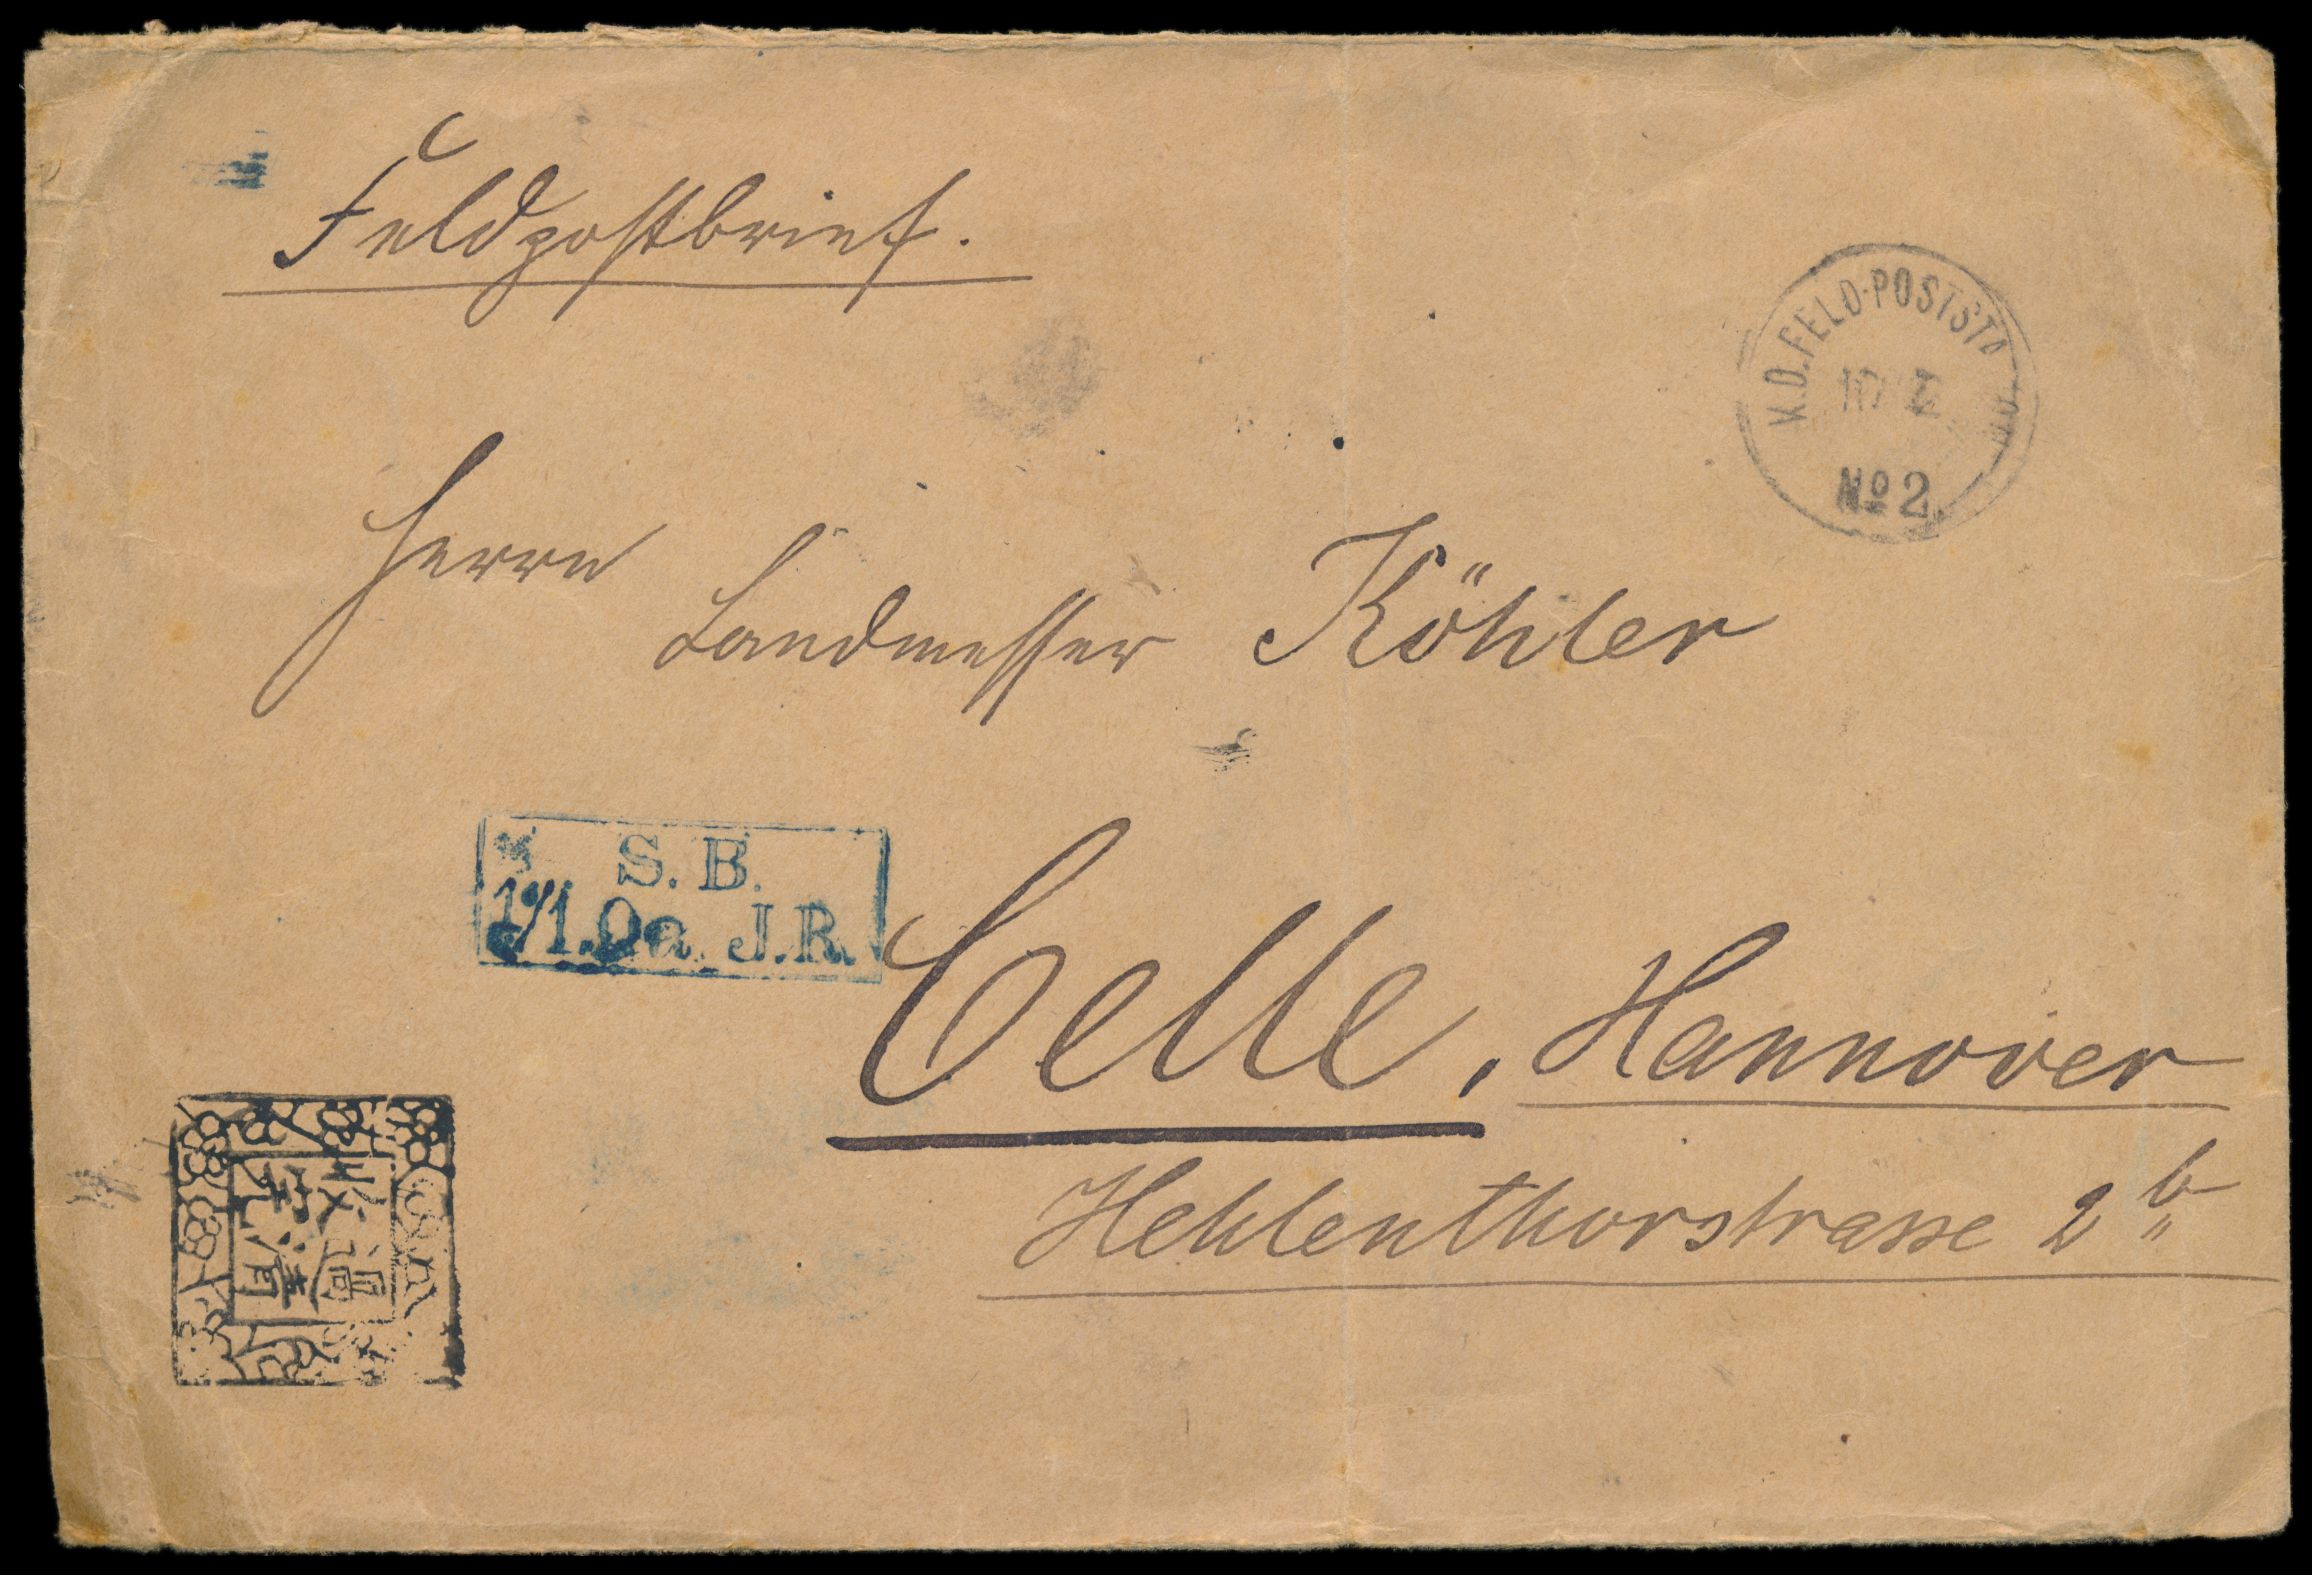 Feldpostbrief.
K.D. FELD-POSTSTATION
No 2
Herrn
Landmesser Köhler
S. B.
J.R.
Celle, Hannover
Hehlenthorstrasse 2b